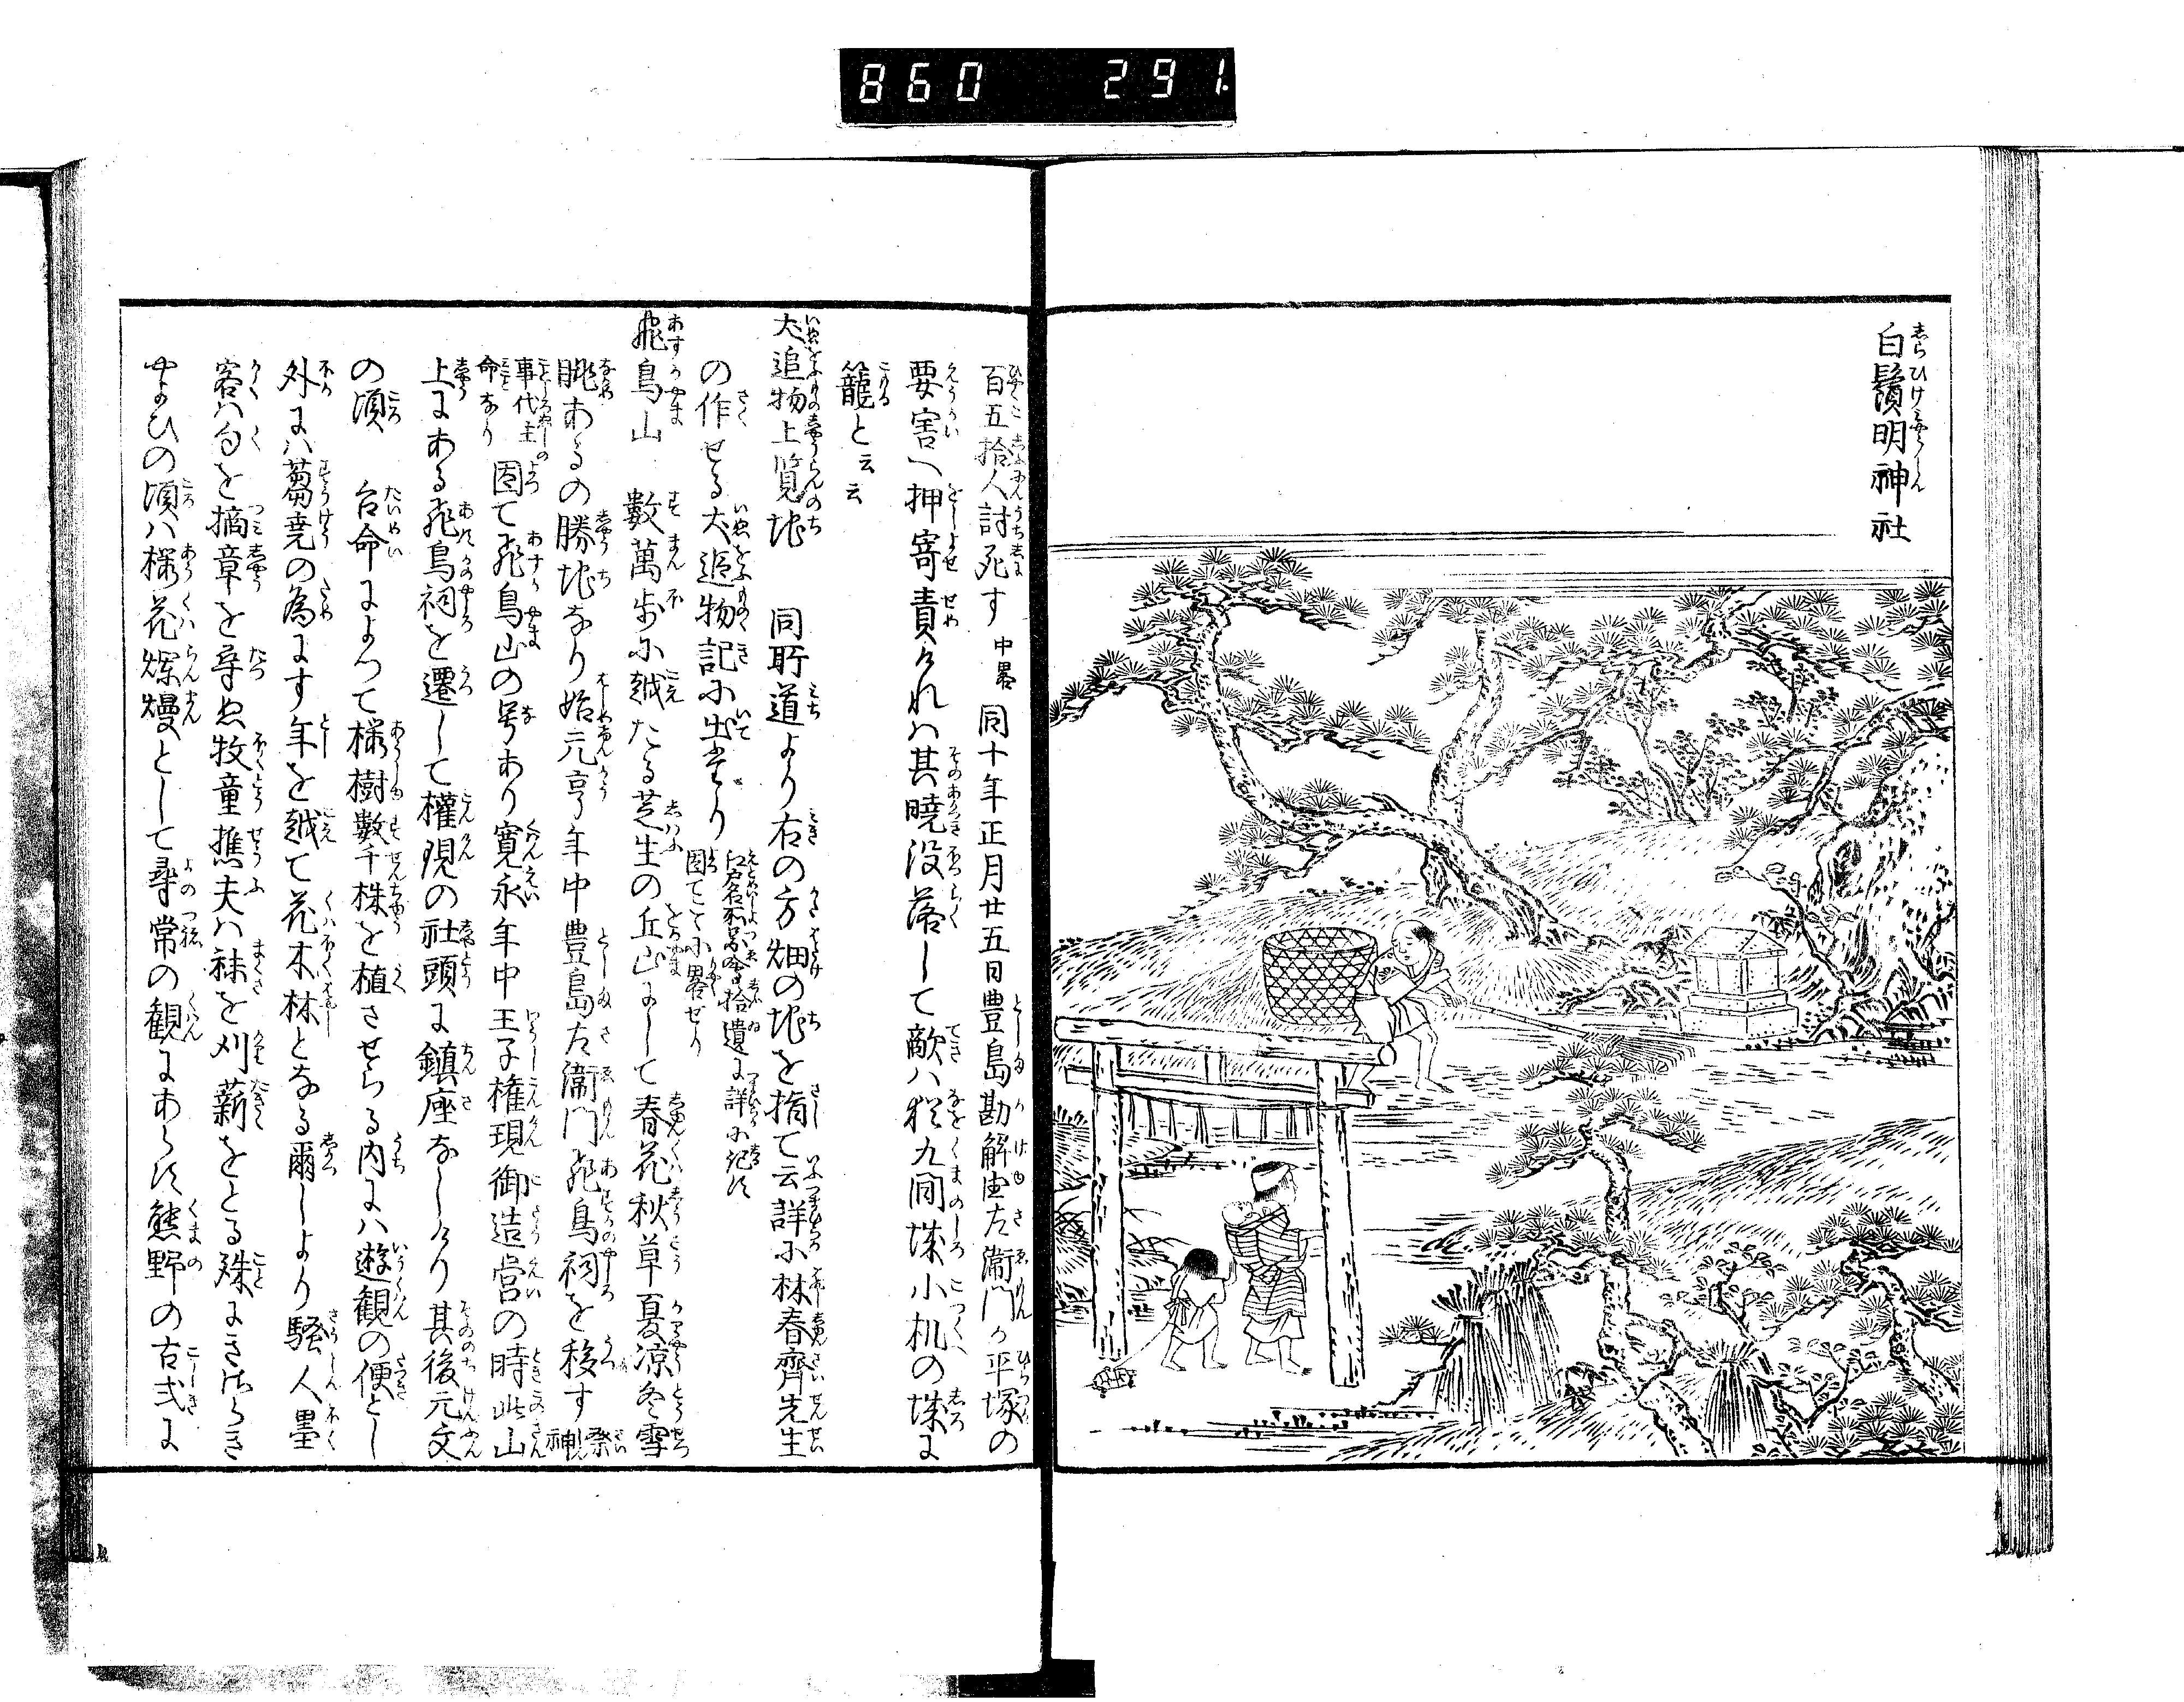 860 291
白鬚明神社
百五拾人討死す 中畧 同十年正月廿五日豊島勘解由左衛門か平塚の
要害へ押寄責けれハ其曉没落して敵ハ猶丸同城小机の城に
籠と云云
犬追物上覧地 同所道より右の方畑の地を指て云詳に林春齊先生
の作せる犬追物記に出たり 江戸名所 拾遺に詳に記す
因てこゝに畧せり
飛鳥山 數萬歩に越たる芝生の丘山にして春花秋草夏凉冬雪
眺あるの勝地なり始元亨年中豊島左衛門飛鳥祠を移す 祭神
事代主
命なり 因て飛鳥山の号あり寛永年中王子権現御造営の時此山
上にある飛鳥祠を遷して權現の社頭に鎮座なしけり其後元文
の頃 台命によつて櫻樹數千株を植させらる内にハ遊観の便とし
外にハ蒭蕘の為にす年を越て花木林となる爾しより騒人墨
客ハ句を摘章を尋ぬ牧童樵夫ハ秣を刈薪をとる殊にきさらき
やよひの頃ハ櫻花爛熳として尋常の観にあらす熊野の古式に